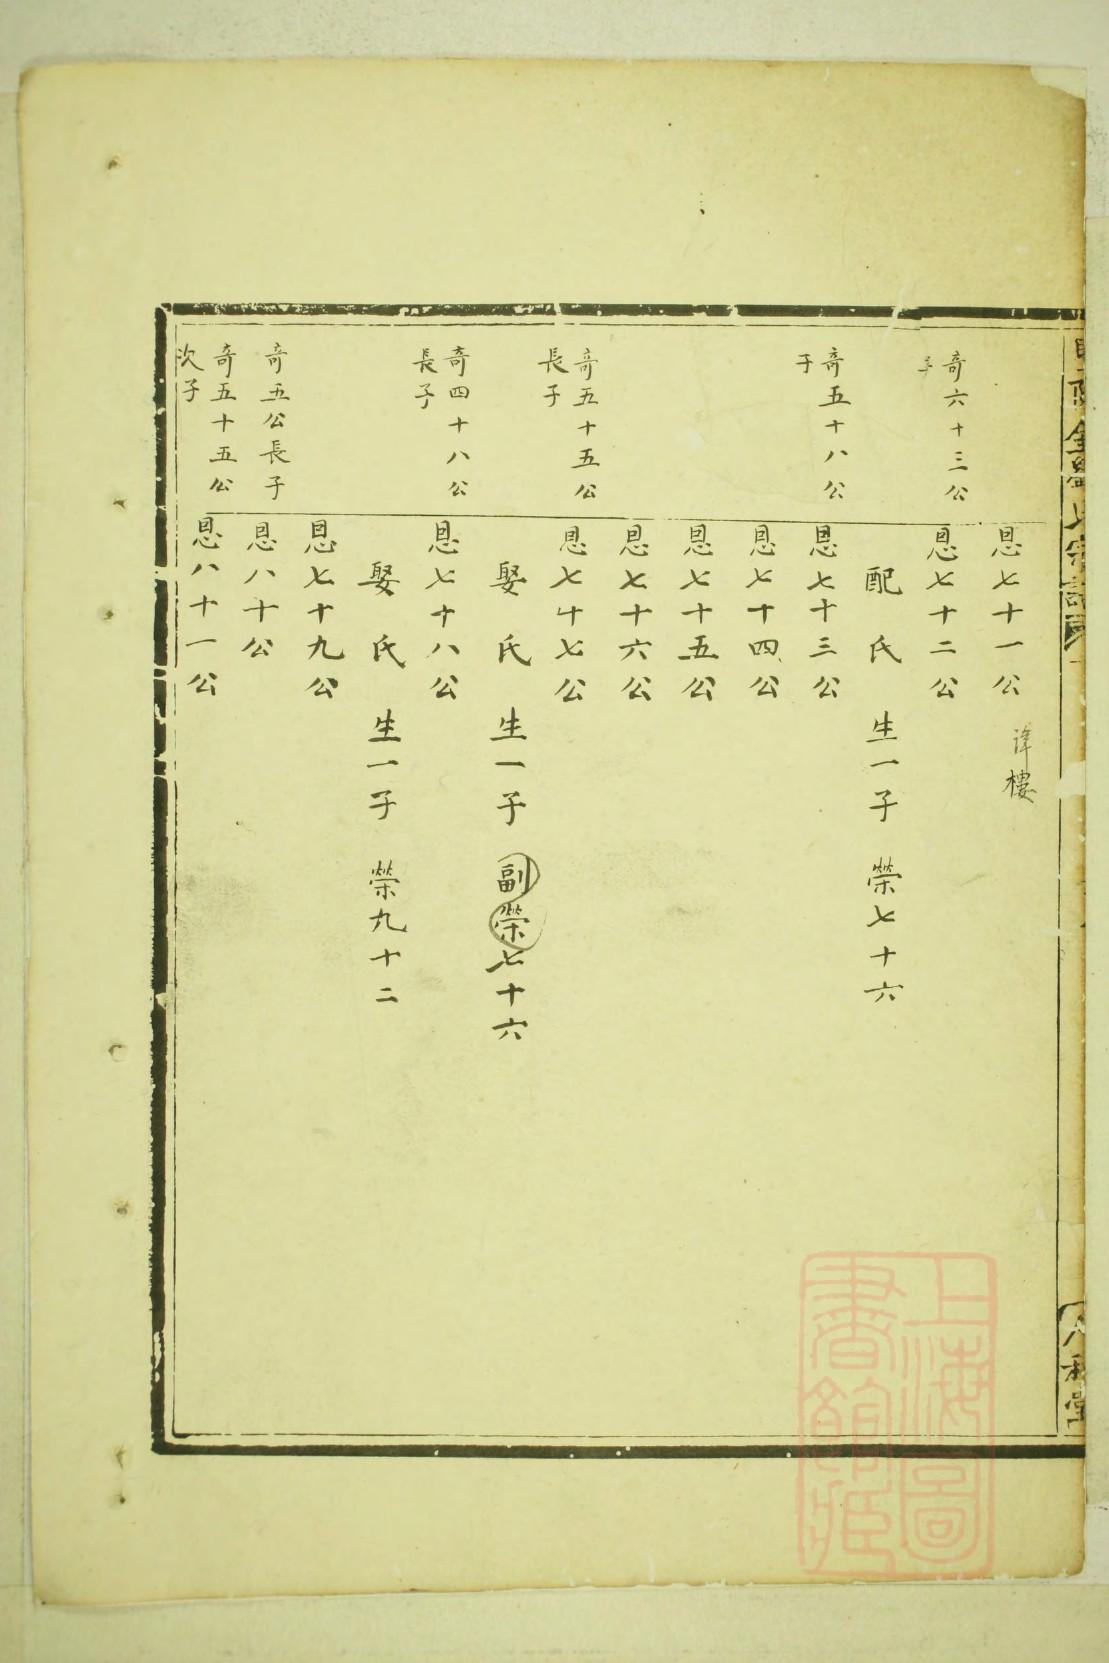 恩七十一公 諱樓
奇六十三公
恩七十二公
配 氏 生一子 榮七十六
奇五十八公
子
恩七十三公
恩七十四公
恩七十五公
恩七十六公
奇五十五公
長子
恩七十七公
娶 氏 生一子 副榮七十六
奇四十八公
長子
恩七十八公
娶 氏 生一子 榮九十二
恩七十九公
奇五公長子
恩八十公
奇五十五公
次子
恩八十一公
上海圖
書館藏